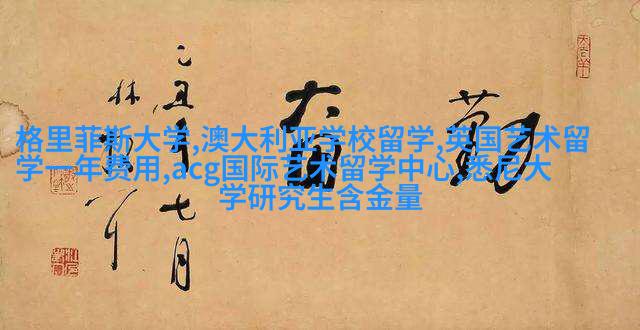 格里菲斯大学,澳大利亚学校留学,英国艺术留
学一年费用,acg国际艺术留学中心,悉尼大
学研究生含金量
勤奋
乙丑年七月
林散耳